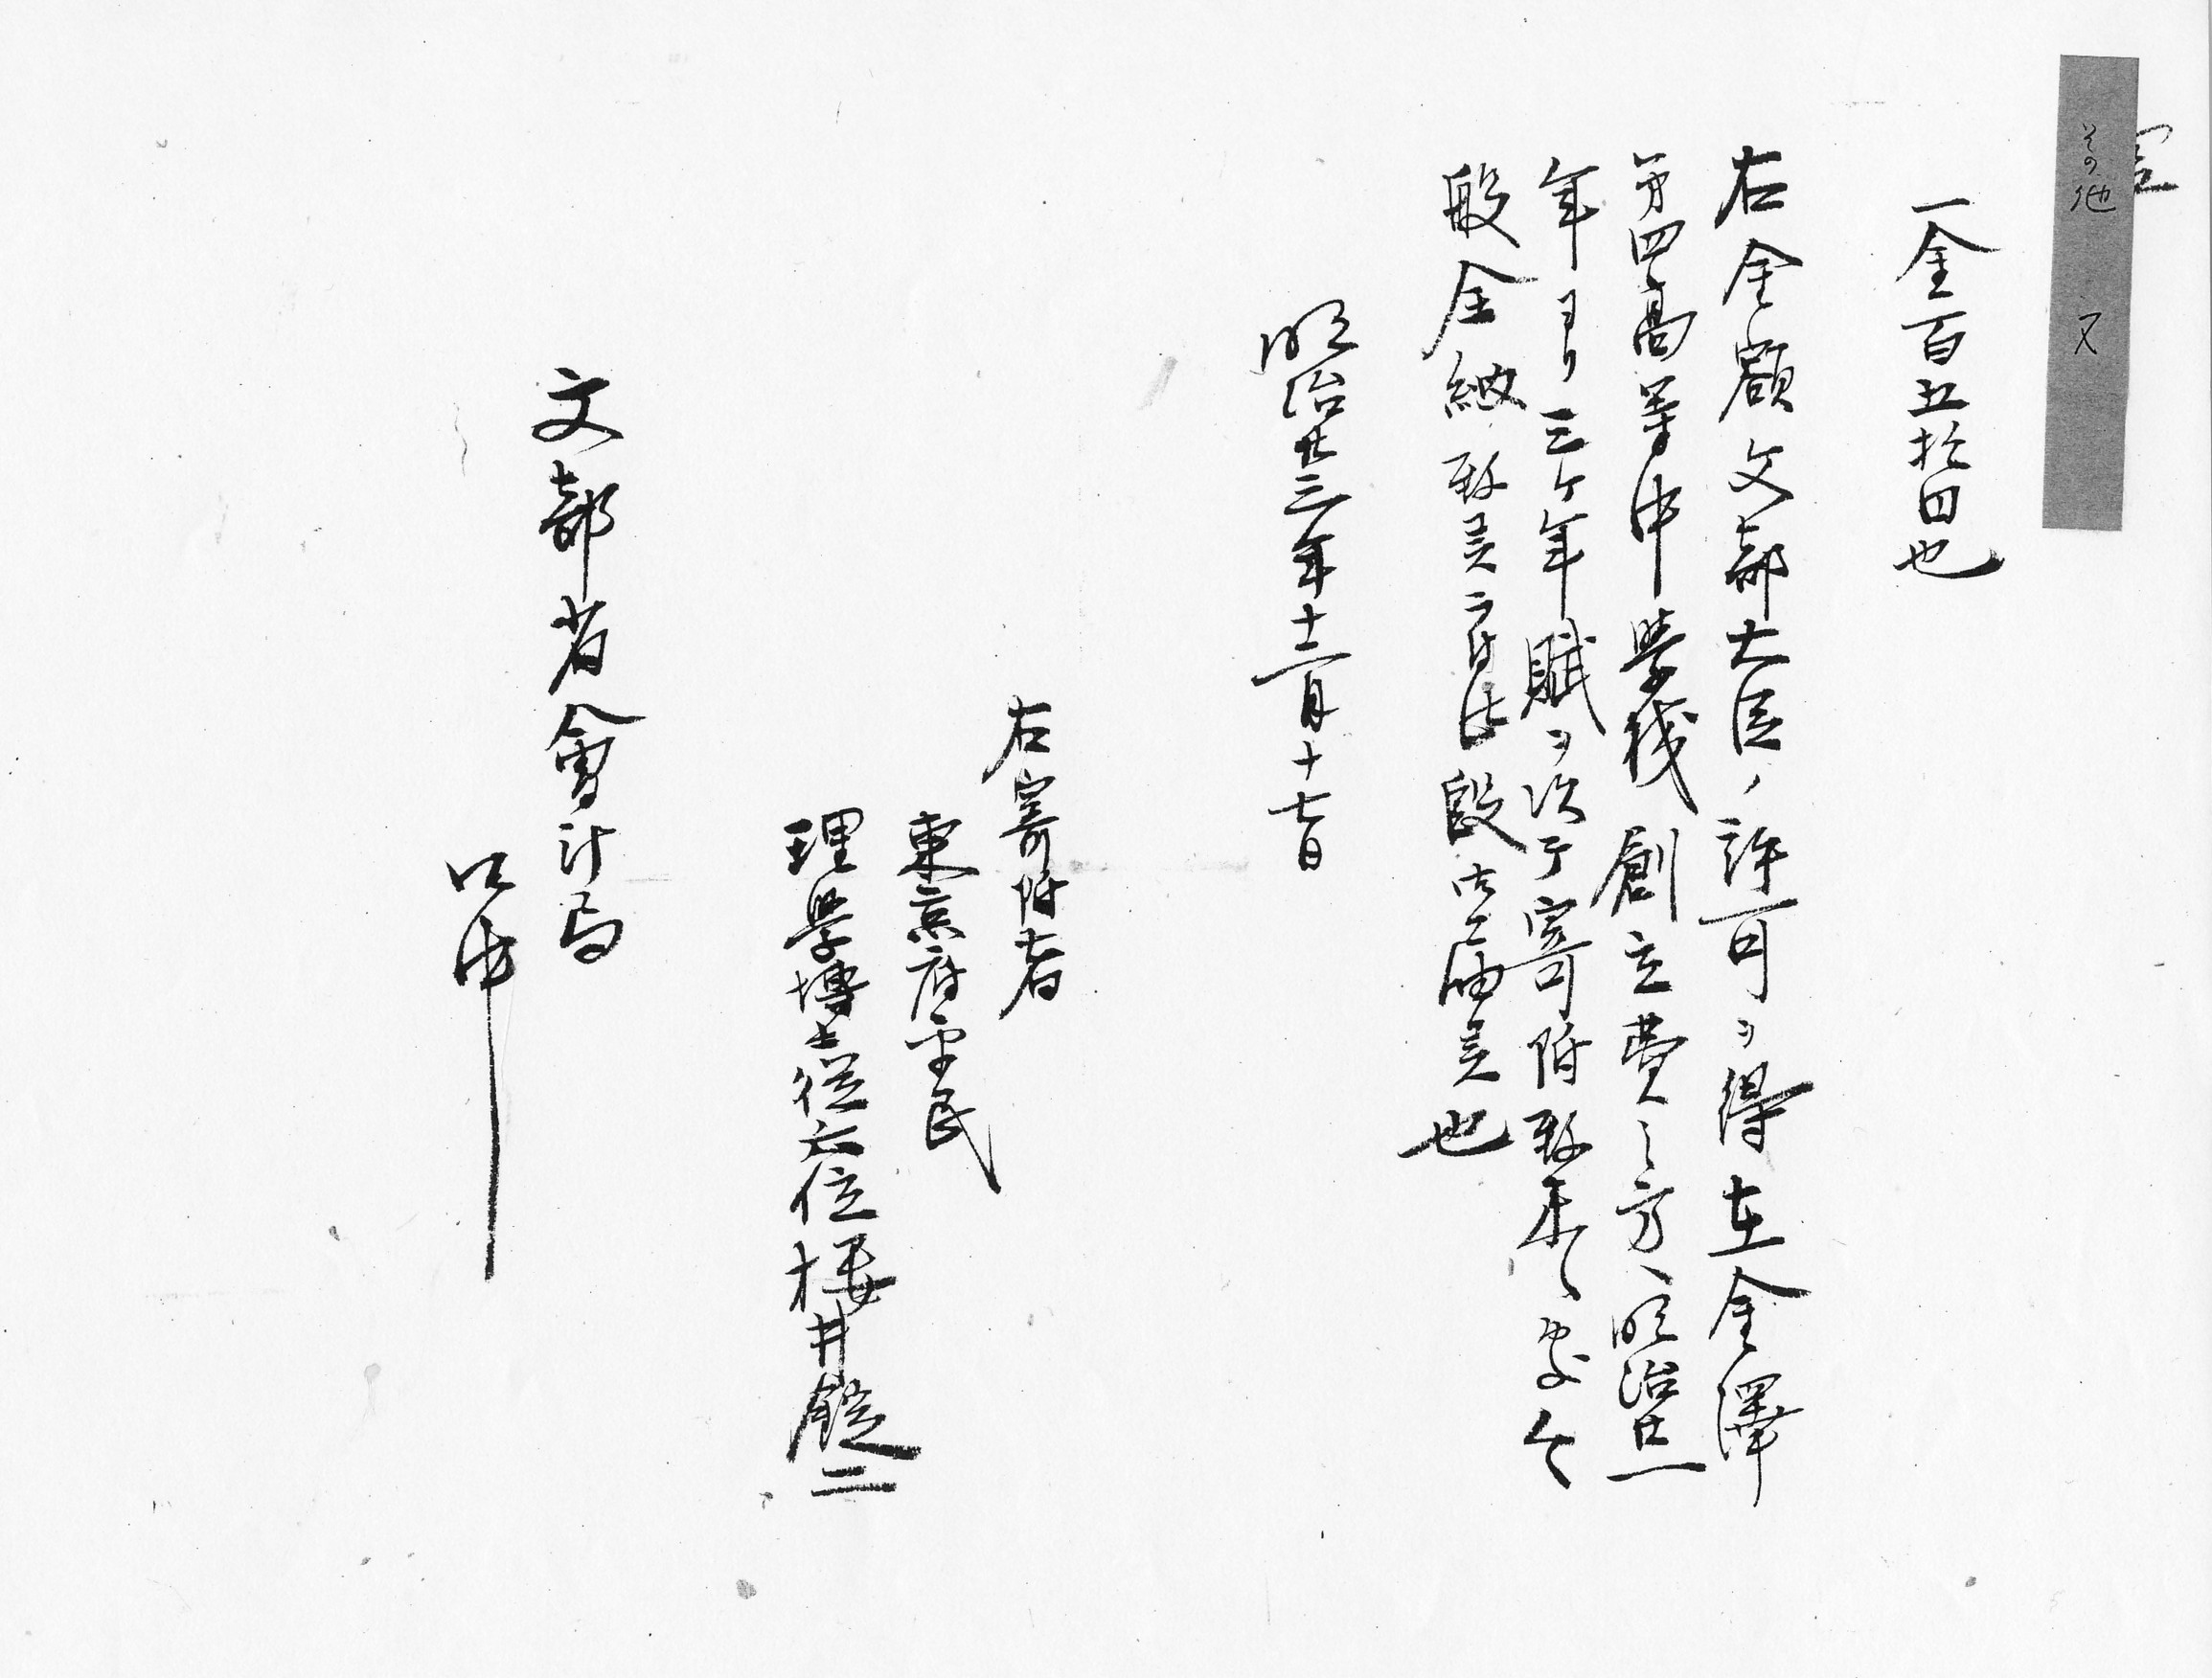 その他 文
一金百五拾円也
右金額文部大臣ノ許可ヲ得在金澤
第四髙等中學校創立費之方ヘ明治廿一
年ヨリ三ケ年賦ヲ以テ寄附致来候處今
般全納致候ニ付此段御届候也
明治廿三年十二月十七日
右寄附者
東京府平民
理學博士従六位櫻井錠二
文部省會計局
御中